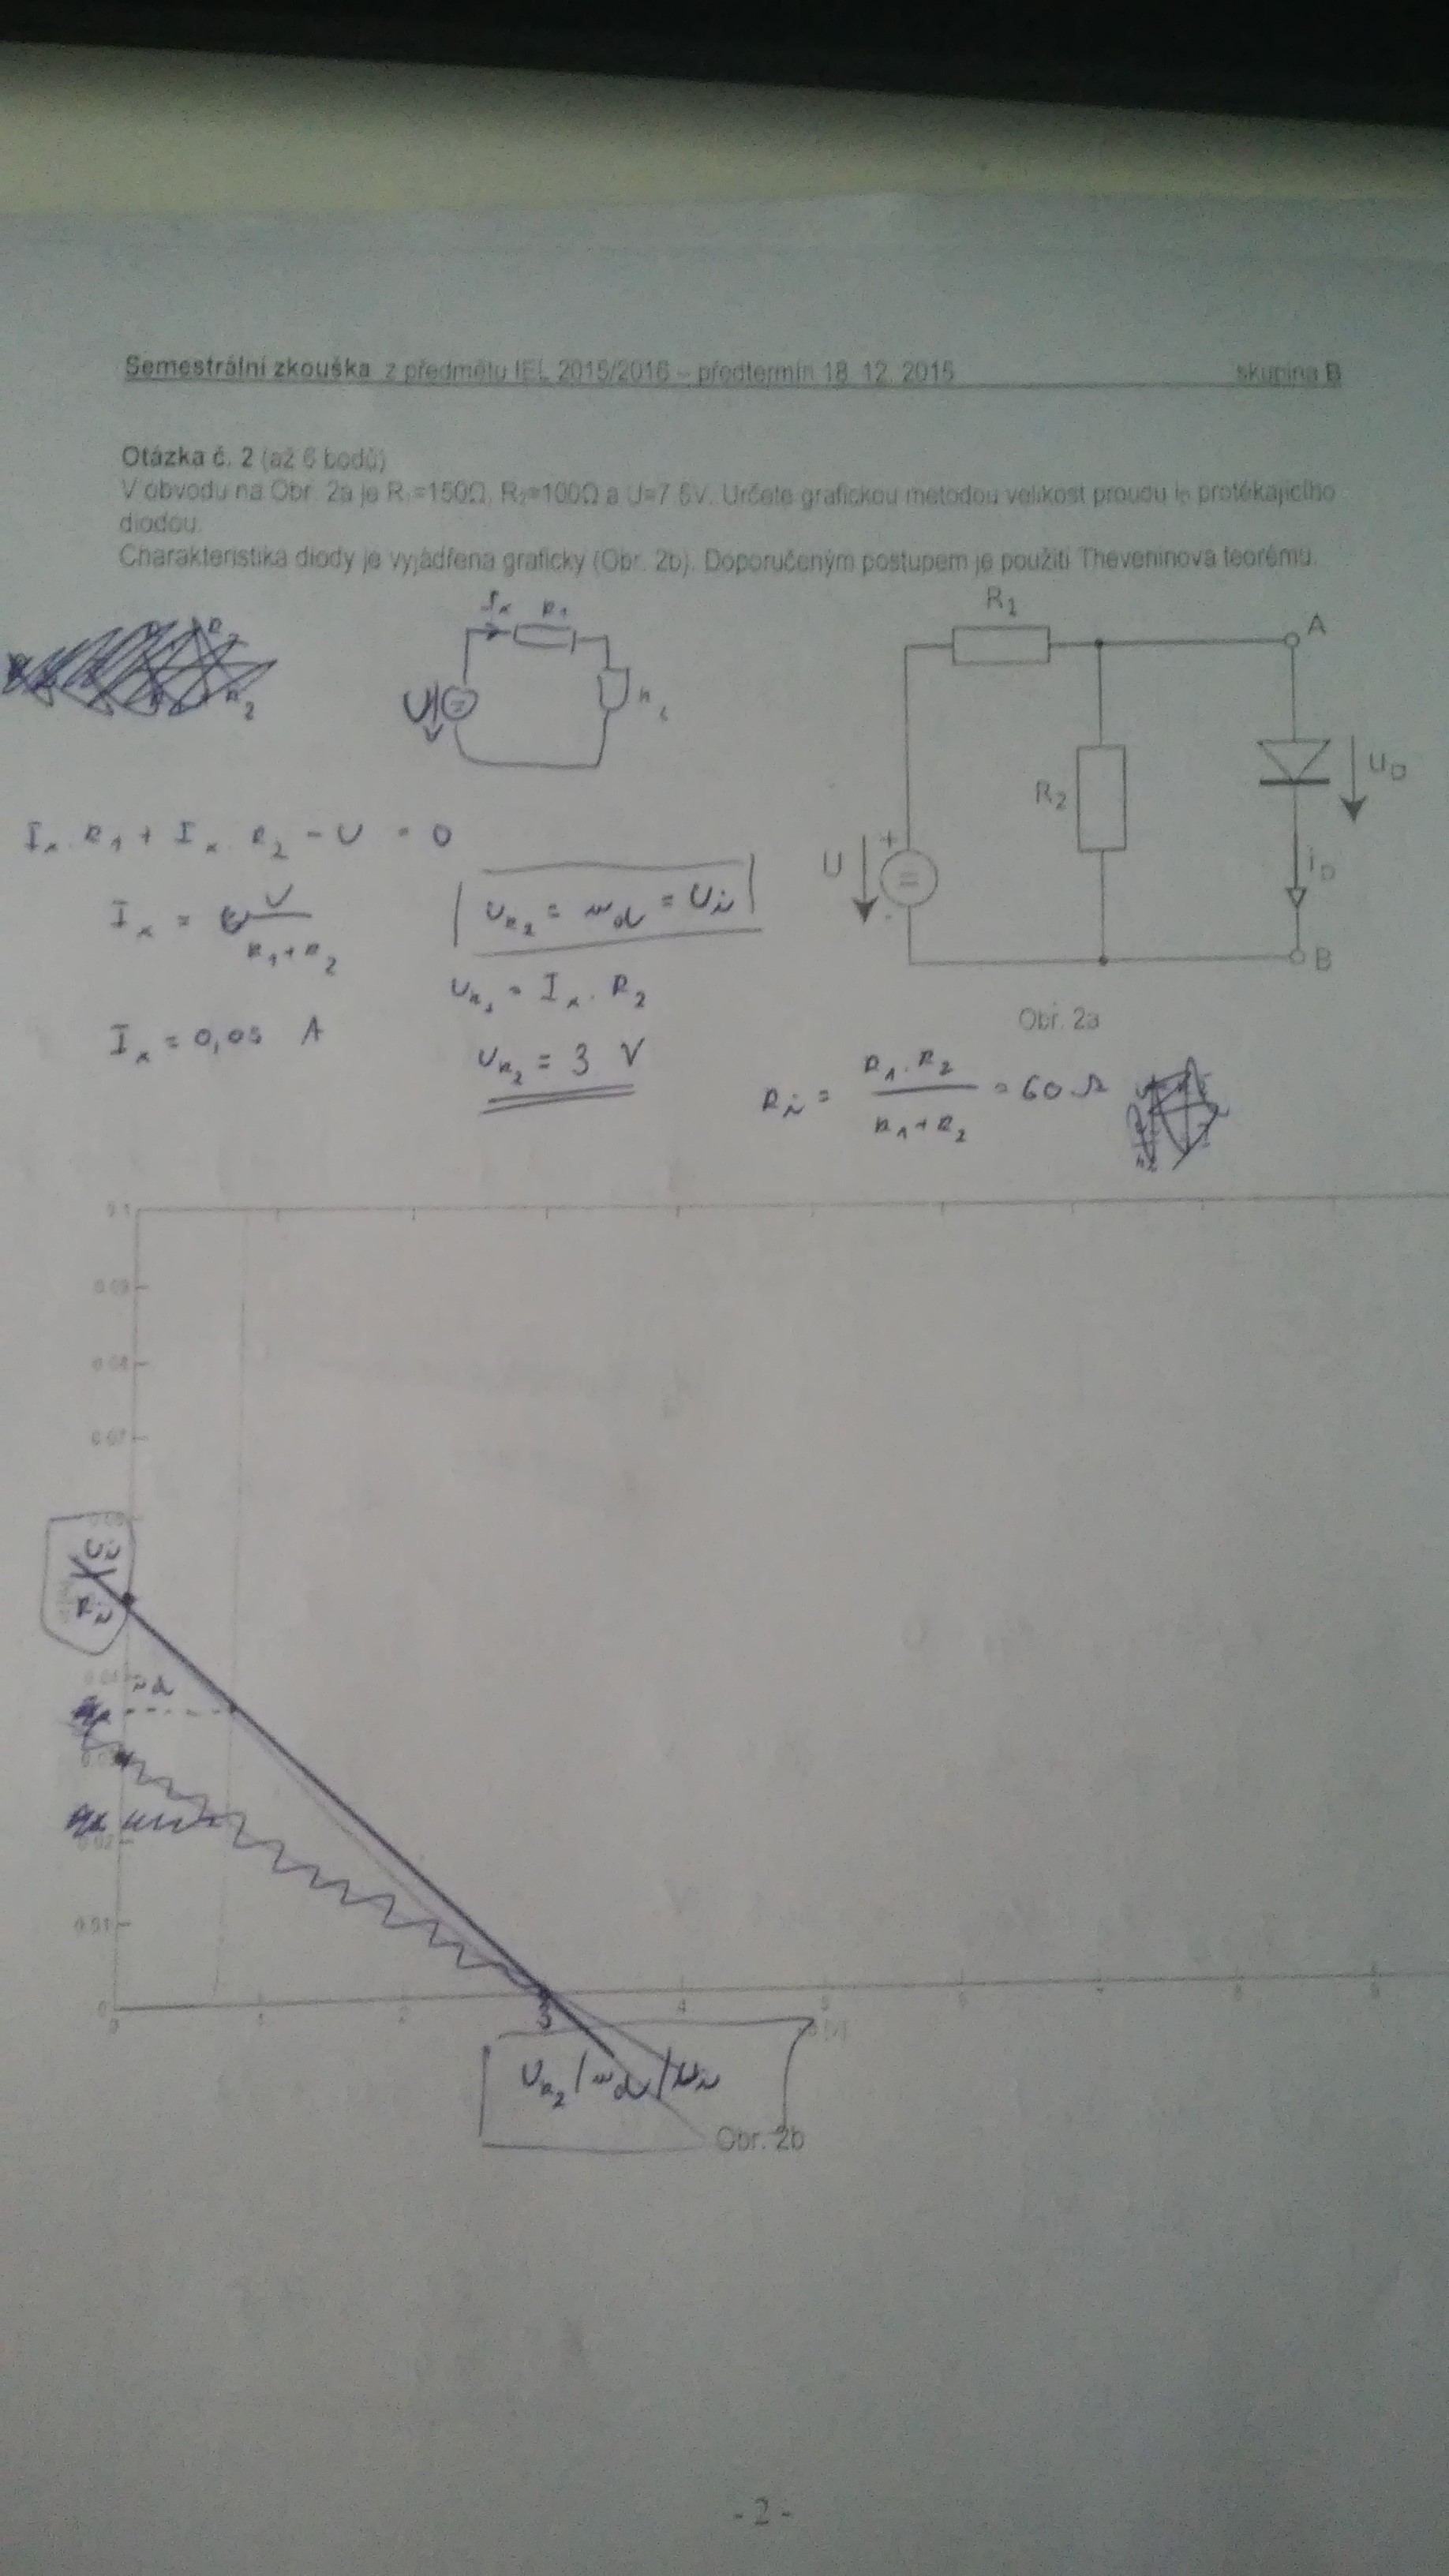 Semestrální zkouška z předmětu IEL 2015/2016 – předtermín 18. 12. 2015 skupina B
Otázka č. 2 (až 6 bodů)
V obvodu na Obr. 2a je R₁=150Ω, R₂=100Ω a U=7.5V. Určete grafickou metodou velikost proudu i_D protékajícího
diodou.
Charakteristika diody je vyjádřena graficky (Obr. 2b). Doporučeným postupem je použití Theveninova teorému.
I_x R_1
U = R_2
R_1 A
R_2 u_D
U + = - i_D
B
Obr. 2a
I_x . R_1 + I_x . R_2 - U = 0
I_x = U / R_1 + R_2
U_R2 = u_d = U_i
U_R2 = I_x . R_2
I_x = 0,03 A
U_R2 = 3 V
R_i = R_1 . R_2 / R_1 + R_2 = 60 Ω
0.1
0.09
0.08
0.07
0.06
U_i / R_i
0.04 i_d
0.02
0.01
0
0 1 2 3 4 5 6 7 8 9
U_R2 / u_d / U_i
Obr. 2b
- 2 -